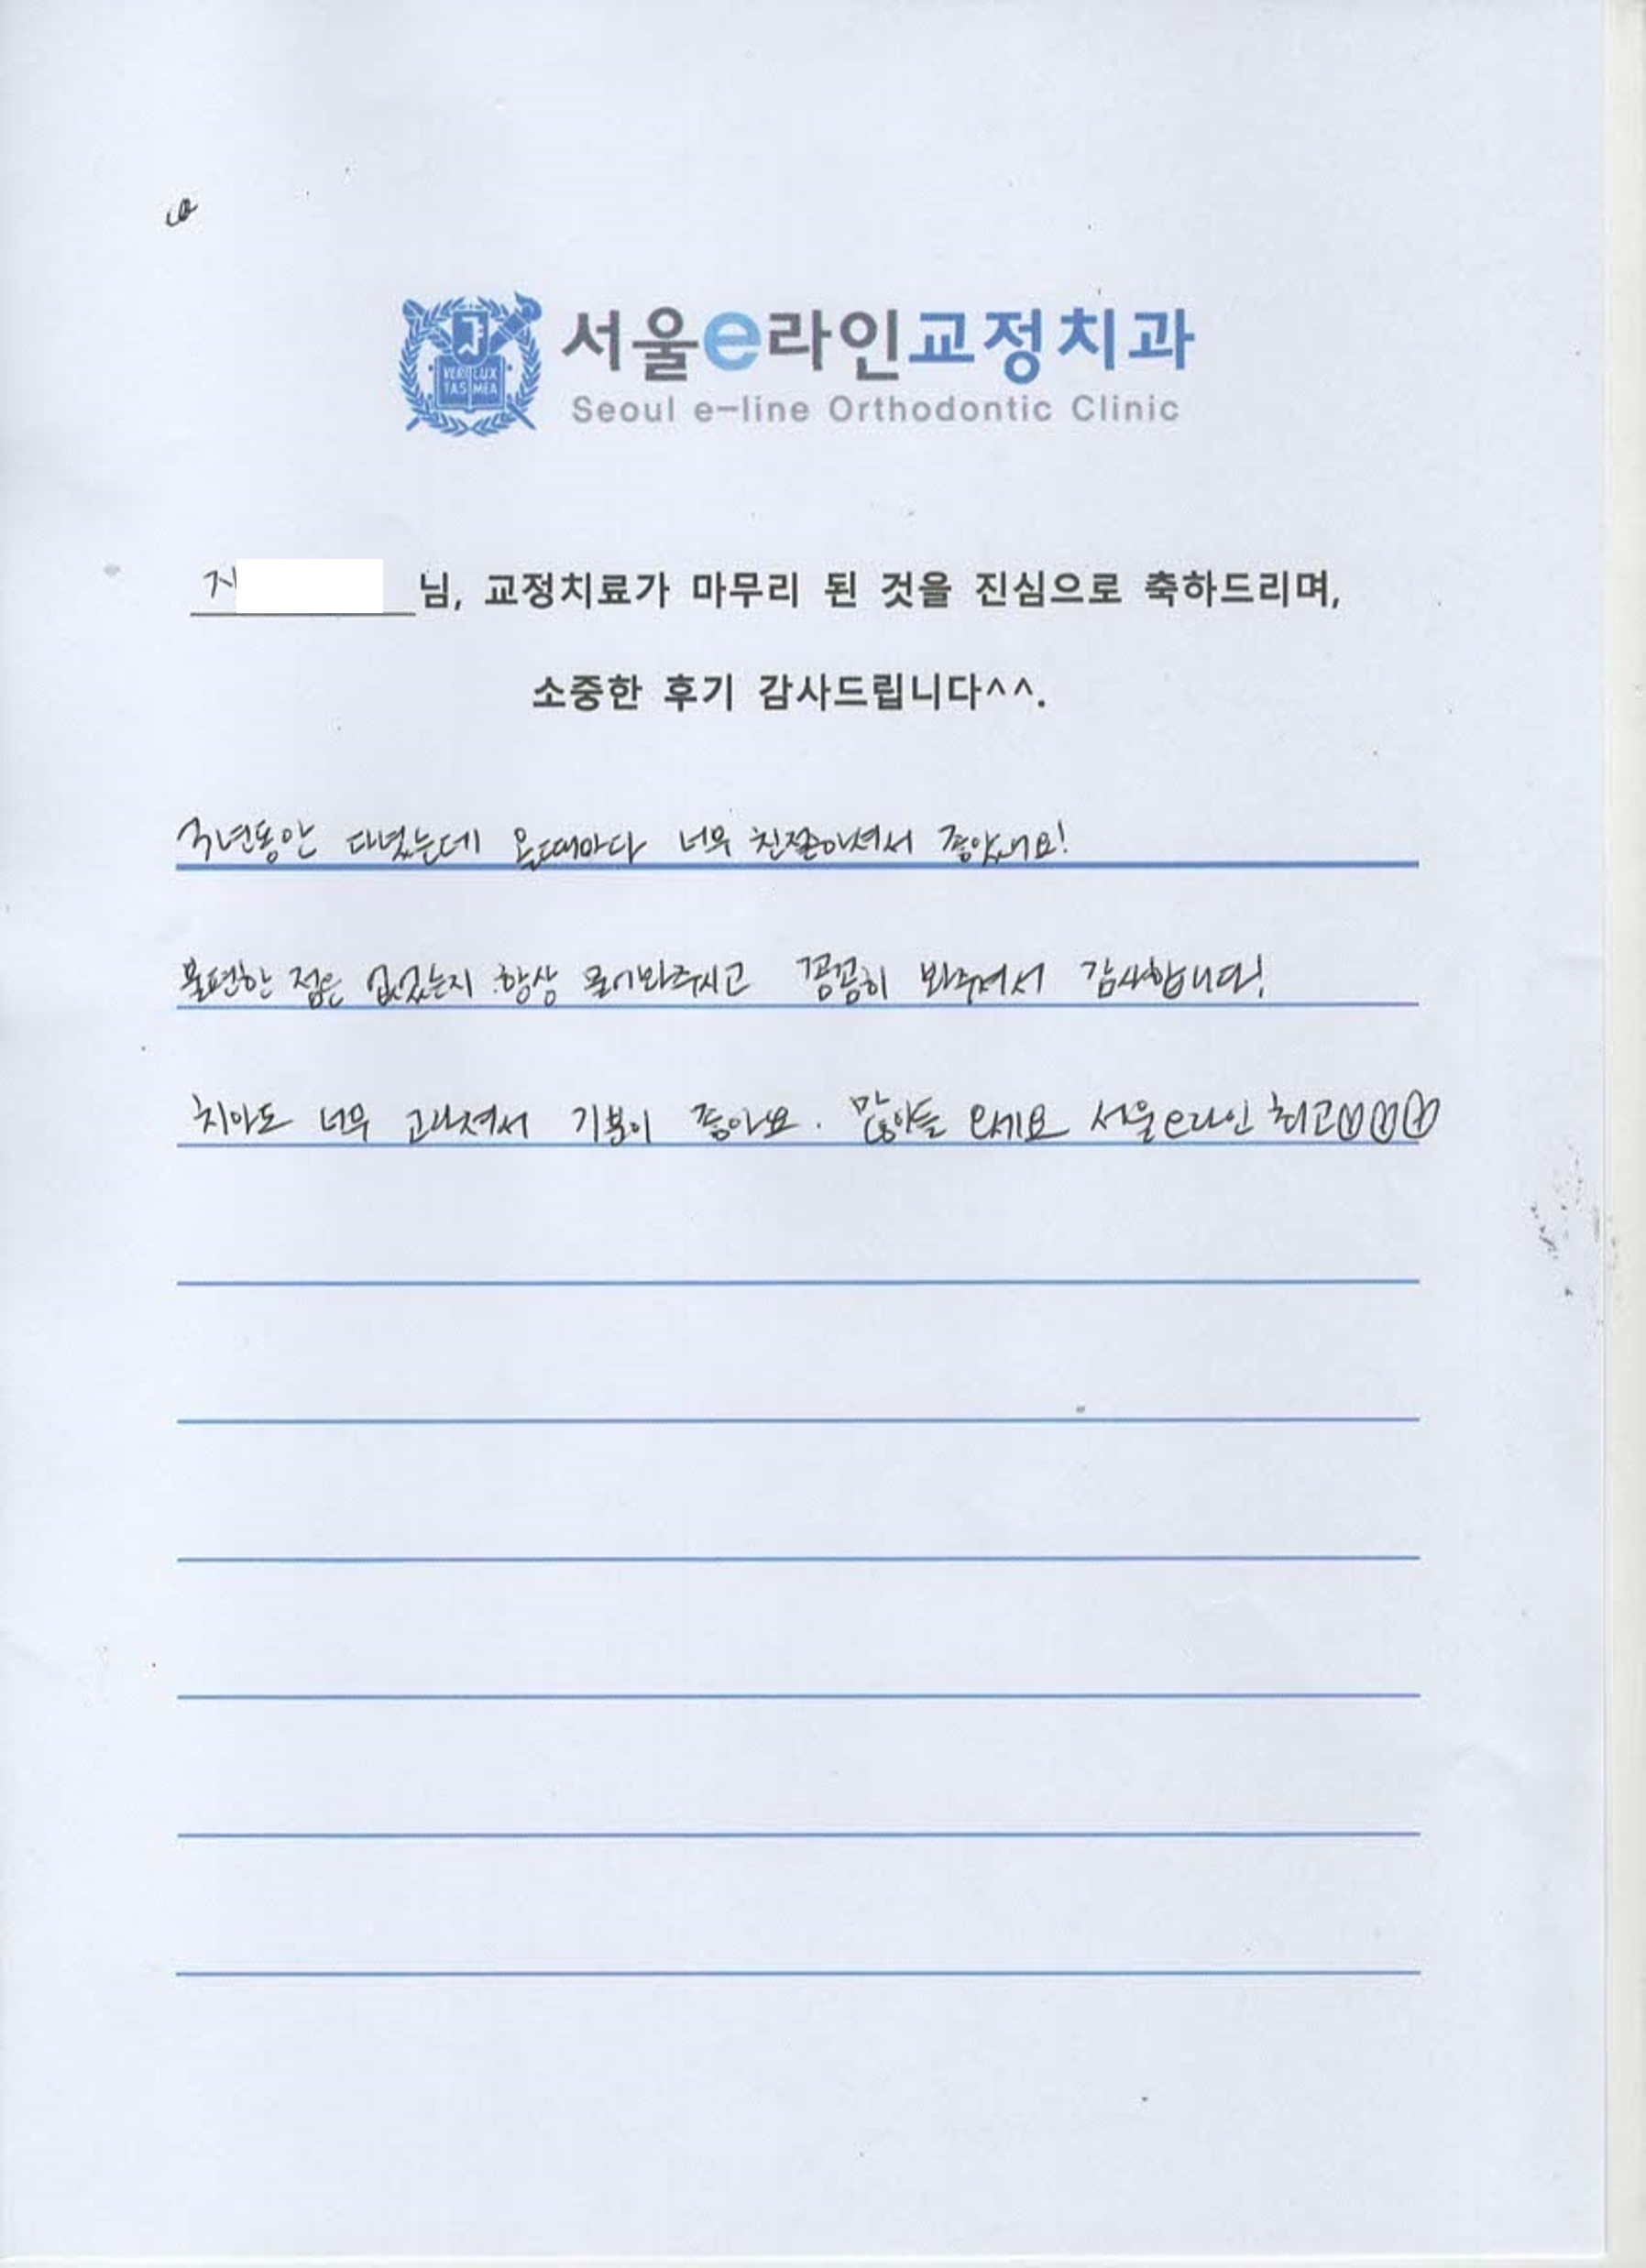 VERI LUX
TAS MEA
서울e라인교정치과
Seoul e-line Orthodontic Clinic
님, 교정치료가 마무리 된 것을 진심으로 축하드리며,
소중한 후기 감사드립니다^^.
3년동안 다녔는데 올때마다 너무 친절하셔서 좋았어요!
불편한 점은 없었는지 항상 물어봐주시고 꼼꼼히 봐주셔서 감사합니다!
치아도 너무 고라져서 기분이 좋아요. 많이들 오세요 서울e라인 최고